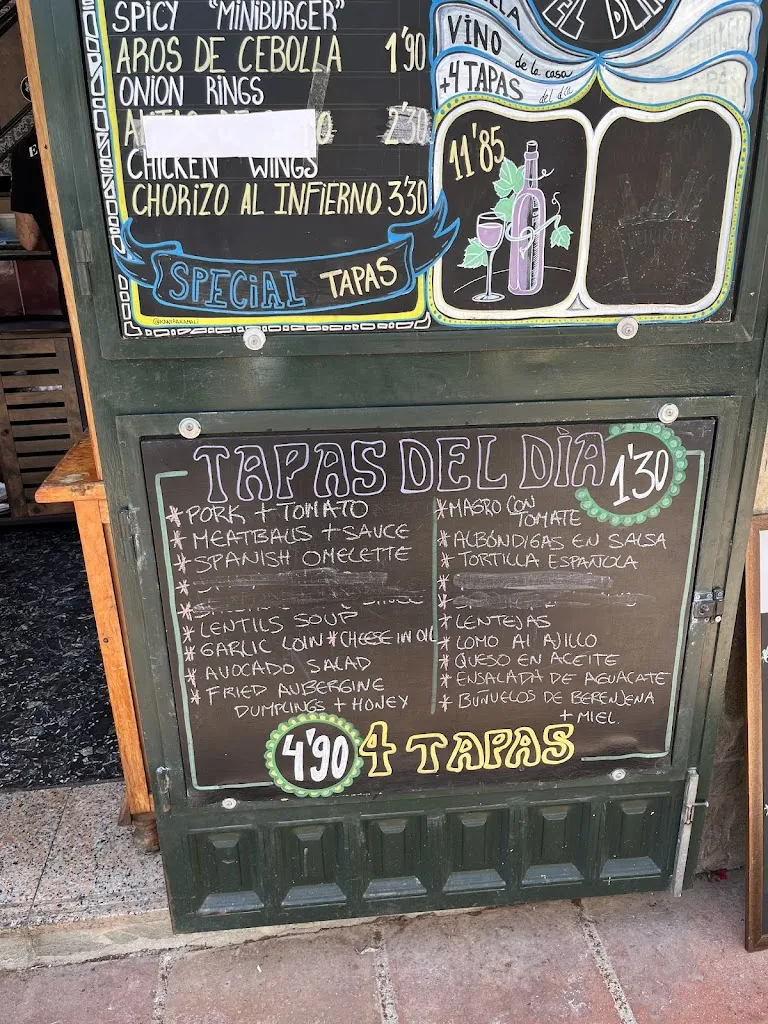 SPICY "MINIBURGER"
AROS DE CEBOLLA 1'90
ONION RINGS
2'30
CHICKEN WINGS
CHORIZO AL INFIERNO 3'30
SPECIAL TAPAS
VINO de la casa
+4 TAPAS del día
11'85
TAPAS DEL DÌA 1'30
*PORK + TOMATO
*MEATBALLS + SAUCE
*SPANISH OMELETTE
*LENTILS SOUP
*GARLIC LOIN *CHEESE IN OIL
*AVOCADO SALAD
*FRIED AUBERGINE
DUMPLINGS + HONEY
*MAGRO CON
TOMATE
*ALBÓNDIGAS EN SALSA
*TORTILLA ESPAÑOLA
*LENTEJAS
*LOMO Al AJILLO
*QUESO EN ACEITE
*ENSALADA DE AGUACATE
*BUÑUELOS DE BERENJENA
+ MIEL.
4'90 4 TAPAS